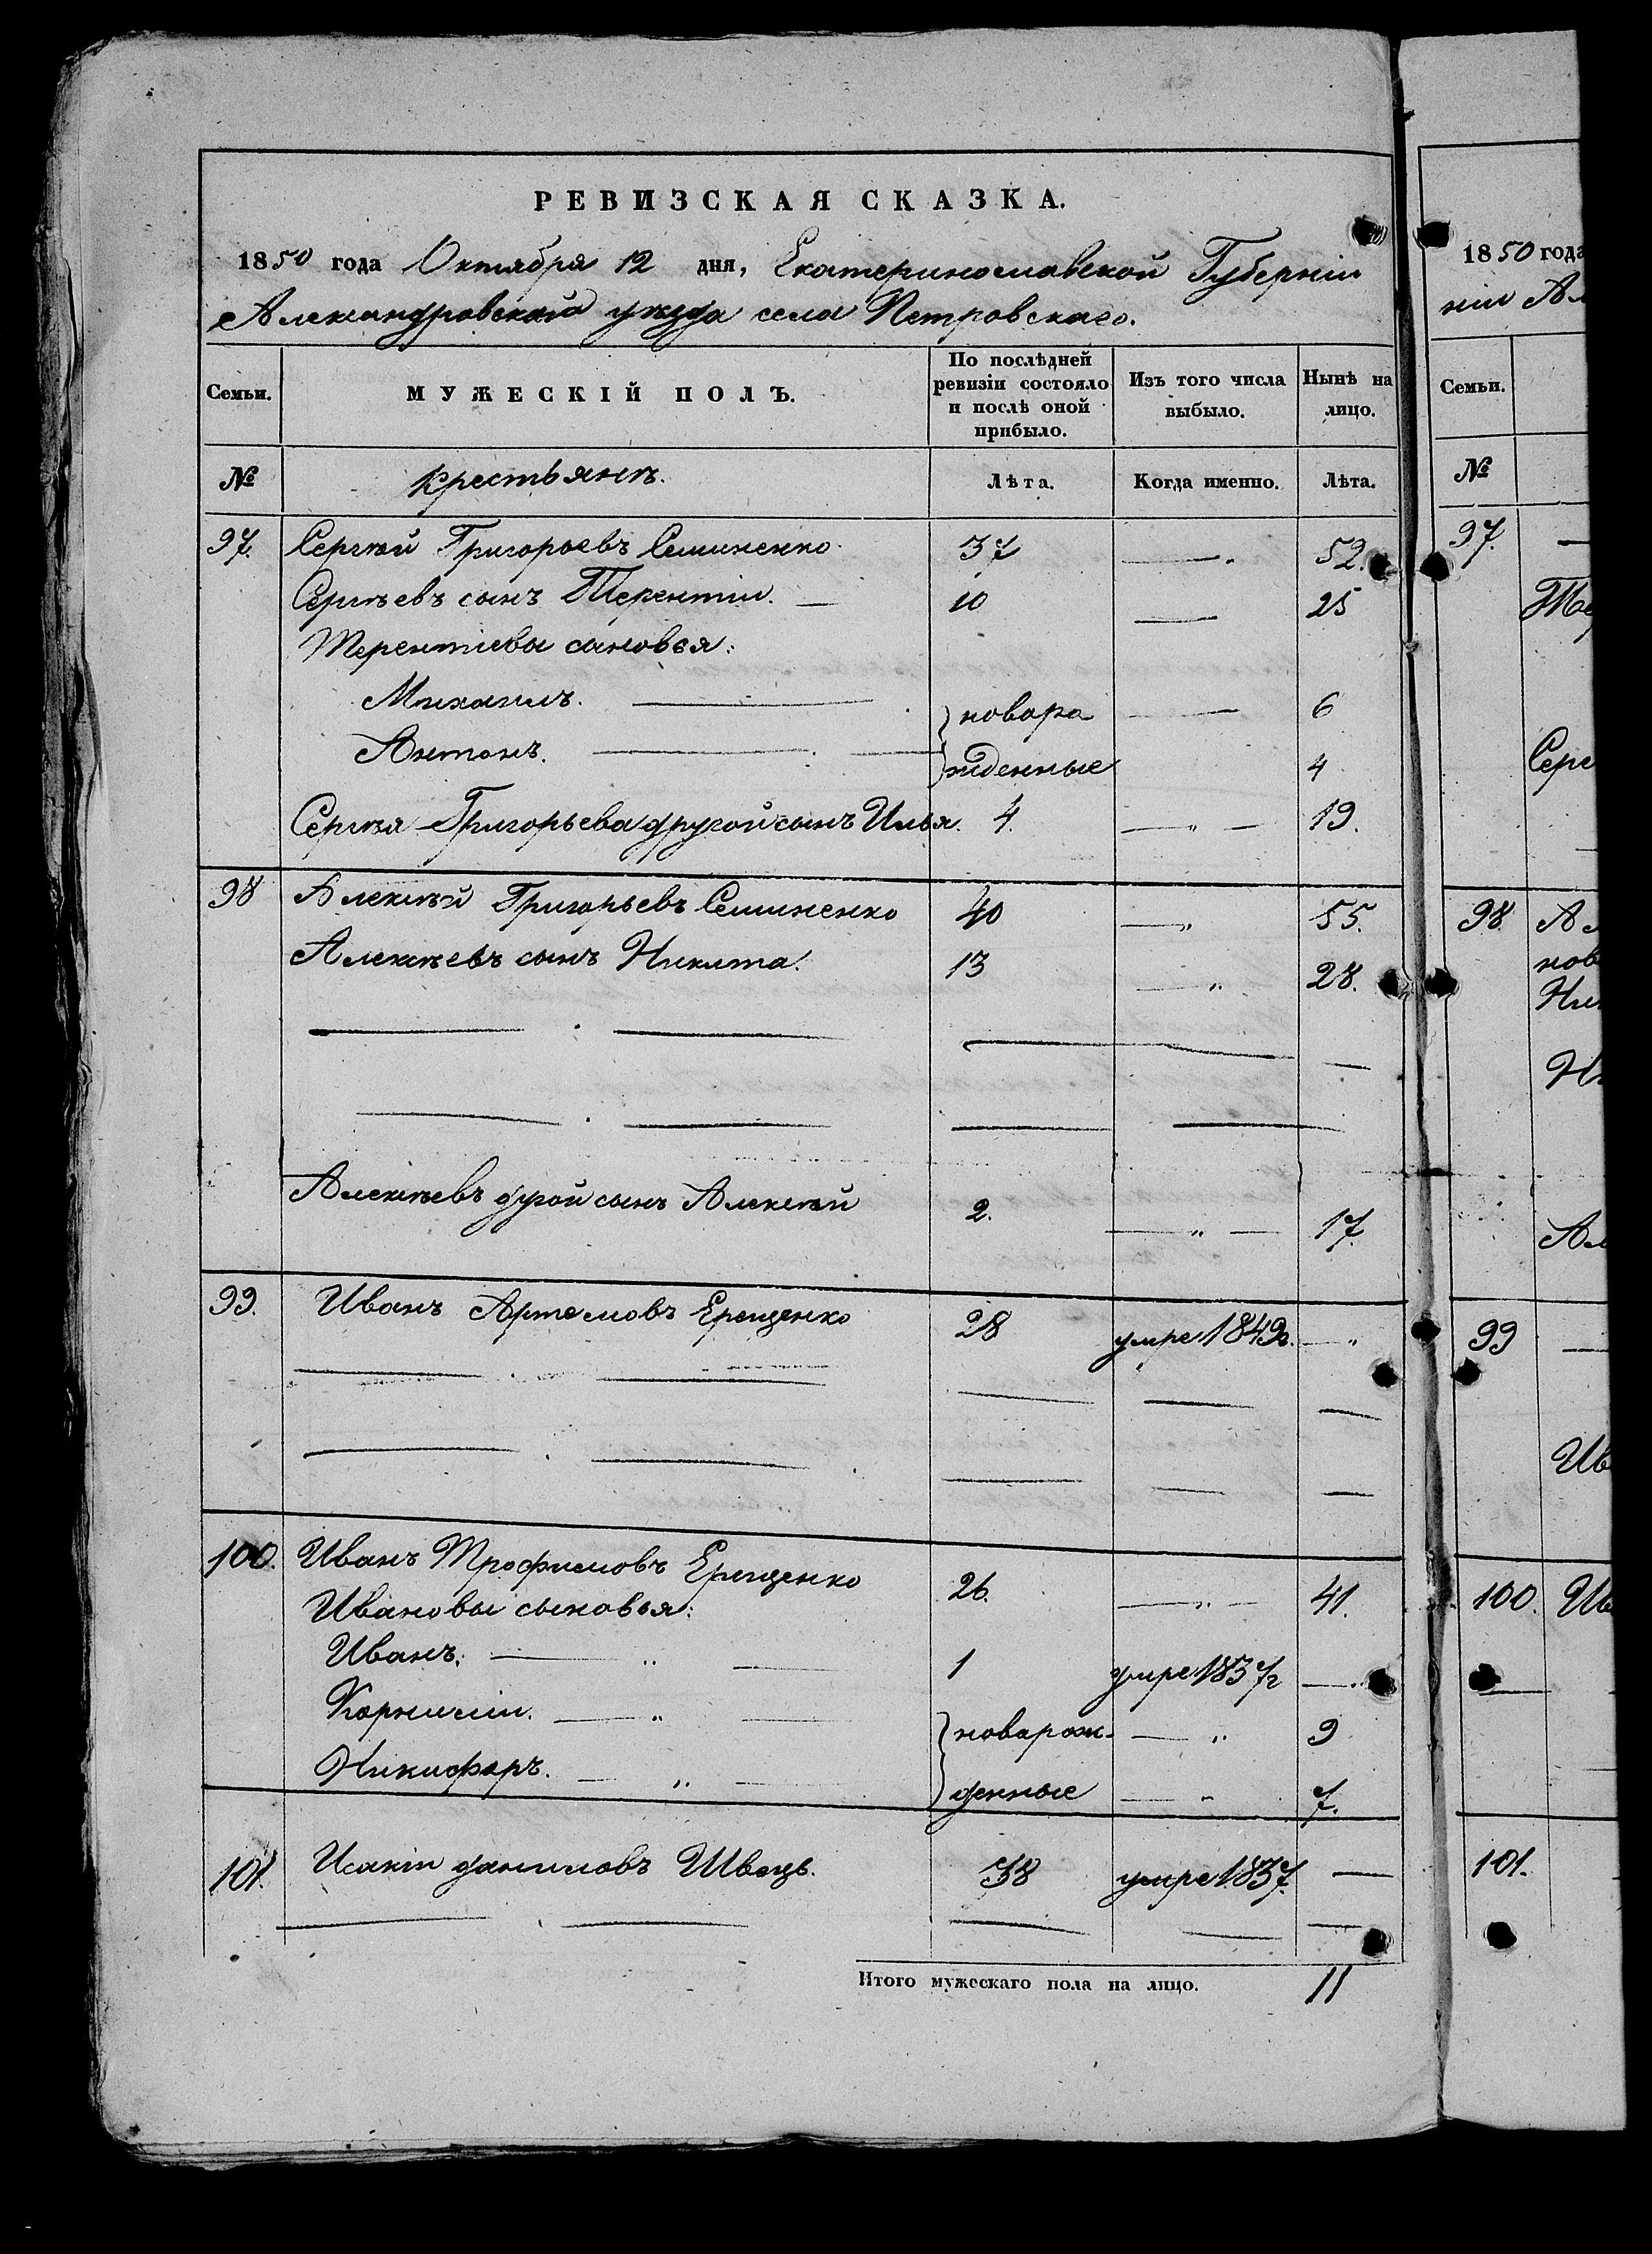 РЕВИЗСКАЯ СКАЗКА.
1850 года Октября 12 дня, Екатеринославской Губерніи
Александровскаго уѣзда села Петровскаго.
Семьи. МУЖЕСКІЙ ПОЛЪ. По послѣдней ревизіи состояло и послѣ оной прибыло. Изъ того числа выбыло. Нынѣ на лицо.
№ крестьянъ. Лѣта. Когда именно. Лѣта.
97. Сергѣй Григорьевъ Семиненко 37 — 52.
Сергѣевъ сынъ Терентіи. — 10 — 25
Терентіевы сыновья:
Михаилъ. — новоро — 6
Антонъ. — жденные 4
Сергѣя Григорьева другой сынъ Илья. 4. — „ — 19.
98 Алексѣй Григорьевъ Семиненко 40 — „ 55.
Алексѣевъ сынъ Никита. 13 — „ 28.
Алексѣевъ другой сынъ Алексѣй 2. — „ — 17.
99. Иванъ Артемовъ Ерещенко 28 умре 1849г. — „
100. Иванъ Трофимовъ Ерещенко 26. — „ — 41.
Ивановы сыновья:
Иванъ. — „ — 1 умре 1837г — „
Корнилій. — „ — новорож- — „ 9
Никифоръ. — „ — денные — „ 7.
101. Исакіи даниловъ Швець. 38 умре 1837. —
Итого мужескаго пола на лицо. 11
1850 года
ніи Ал
Семьи.
№
97. —
Тер
Серг
98. Ал
нов
Ник
Ни
Ал
99 —
Ив
100. Ив
101.